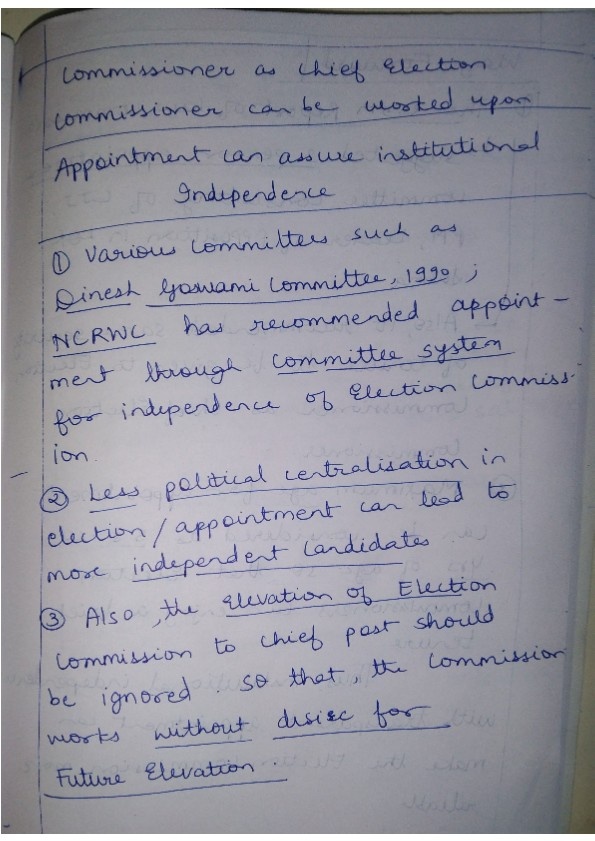 Commissioner as chief Election
commissioner can be worked upon
Appointment can assure institutional
Independence
① Various Committees such as
Dinesh Goswami Committee, 1990 ;
NCRWC has recommended appoint-
ment through committee system
for independence of Election Commiss-
ion.
② Less political centralisation in
election/appointment can lead to
more independent candidates
③ Also, the elevation of Election
Commission to chief post should
be ignored so that, the Commission
works without for
Future Elevation.